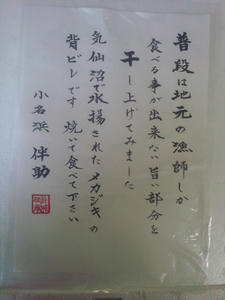 普段は地元の漁師しか
食べる事が出来ない旨い部分を
干し上げてみました
気仙沼で水揚されたメカジキの
背ビレです 焼いて食べて下さい
小名浜 伴助